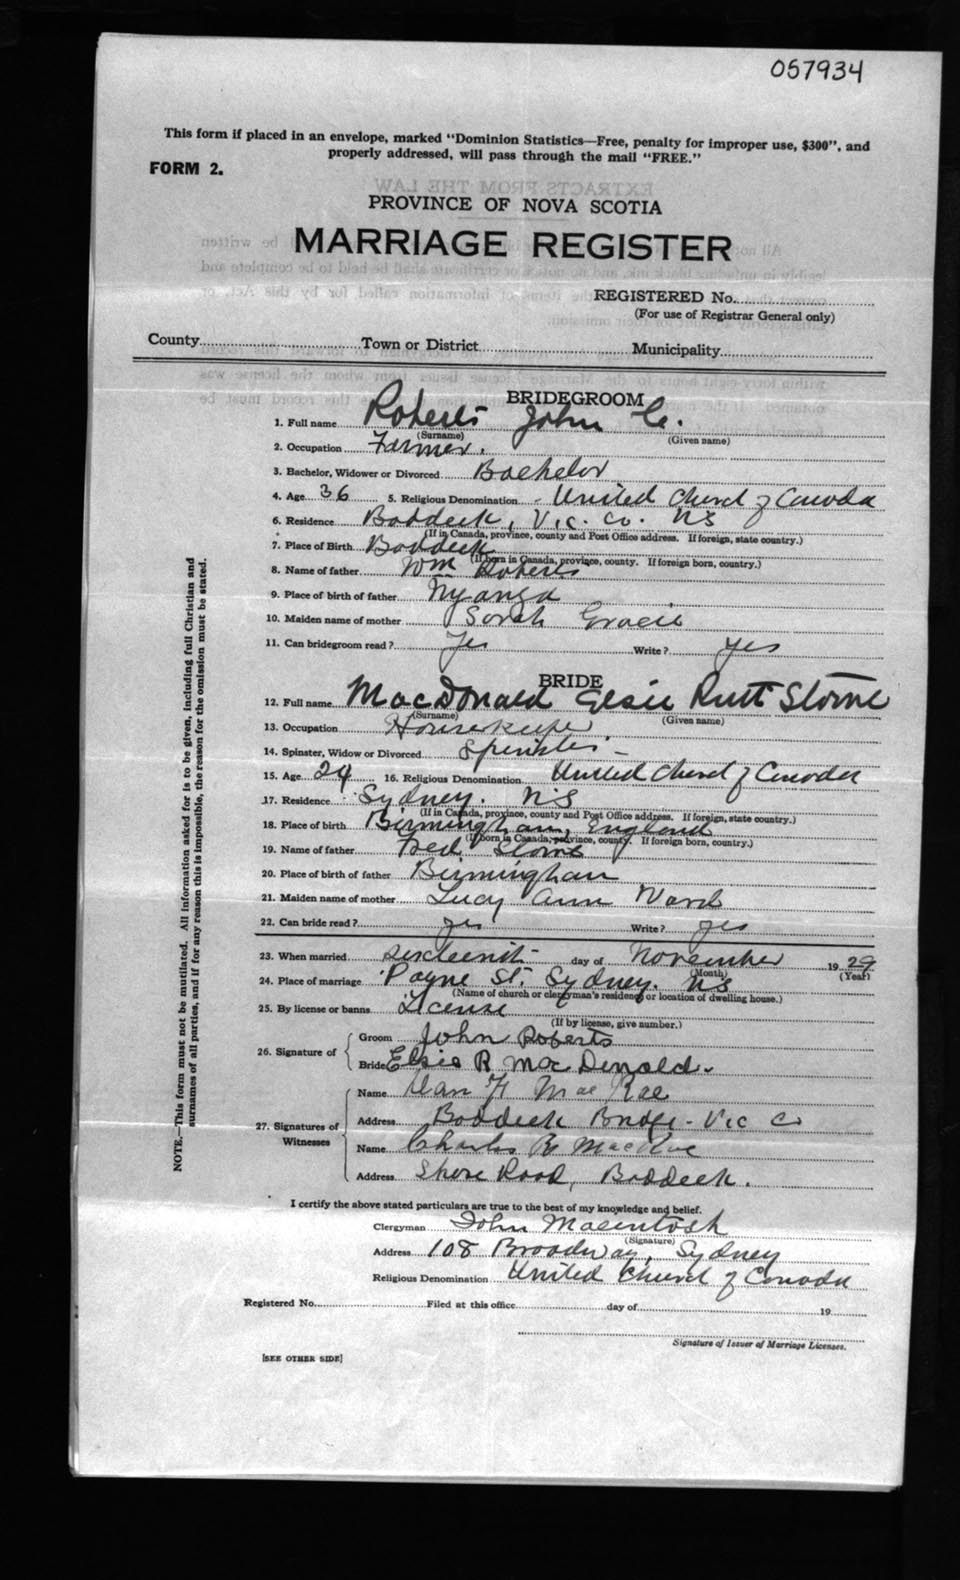 057934
This form if placed in an envelope, marked "Dominion Statistics—Free, penalty for improper use, $300", and
properly addressed, will pass through the mail "FREE."
FORM 2.
PROVINCE OF NOVA SCOTIA
MARRIAGE REGISTER
REGISTERED No.
(For use of Registrar General only)
County Town or District Municipality
BRIDEGROOM
1. Full name Roberts John C.
(Surname) (Given name)
2. Occupation Farmer.
3. Bachelor, Widower or Divorced Bachelor
4. Age 36 5. Religious Denomination - United Church of Canada
6. Residence Baddeck, Vic. Co. NS
(If in Canada, province, county and Post Office address. If foreign, state country.)
7. Place of Birth Baddeck
(If born in Canada, province, county. If foreign born, country.)
8. Name of father Wm Roberts
9. Place of birth of father Nyanza
10. Maiden name of mother Sarah Gracie
11. Can bridegroom read? Yes Write? Yes
BRIDE
12. Full name MacDonald Elsie Ruth Stowe
(Surname) (Given name)
13. Occupation Housekeeper
14. Spinster, Widow or Divorced Spinster -
15. Age 24 16. Religious Denomination United Church of Canada
17. Residence Sydney. NS
(If in Canada, province, county and Post Office address. If foreign, state country.)
18. Place of birth Birmingham, England
(If born in Canada, province, county. If foreign born, country.)
19. Name of father Fred Stowe
20. Place of birth of father Birmingham
21. Maiden name of mother Lucy Ann Ward
22. Can bride read? yes Write? yes
23. When married sixteenth day of November 1929
(Month) (Year)
24. Place of marriage Payne St. Sydney. NS
(Name of church or clergyman's residence or location of dwelling house.)
25. By license or banns License
(If by license, give number.)
26. Signature of Groom John Roberts
Bride Elsie R MacDonald.
27. Signatures of Witnesses Name Dan F MacRae
Address Baddeck Bridge - Vic Co
Name Charles R MacRae
Address Shore Road, Baddeck.
I certify the above stated particulars are true to the best of my knowledge and belief.
Clergyman John Macintosh
(Signature)
Address 108 Broadway, Sydney
Religious Denomination United Church of Canada
Registered No. Filed at this office day of 19
Signature of Issuer of Marriage Licenses.
[SEE OTHER SIDE]
NOTE.—This form must not be mutilated. All information asked for is to be given, including full Christian and
surnames of all parties, and if for any reason this is impossible, the reason for the omission must be stated.